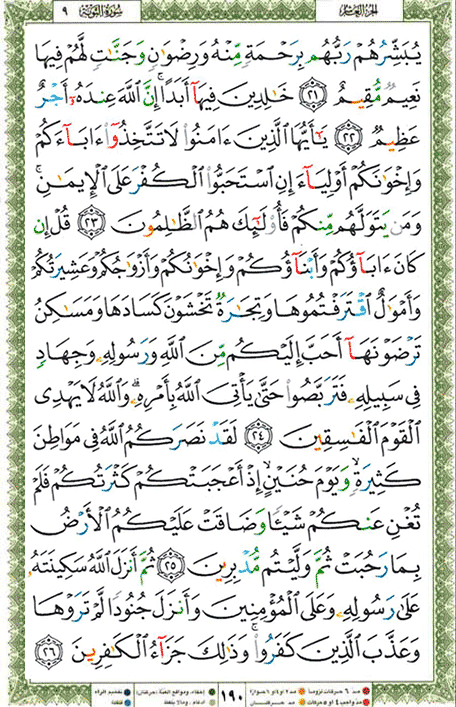 الجزء العاشر سورة التوبة ٩
يُبَشِّرُهُمْ رَبُّهُم بِرَحْمَةٍ مِّنْهُ وَرِضْوَٰنٍ وَجَنَّٰتٍ لَّهُمْ فِيهَا
نَعِيمٌ مُّقِيمٌ ٢١ خَٰلِدِينَ فِيهَآ أَبَدًا ۚ إِنَّ ٱللَّهَ عِندَهُۥٓ أَجْرٌ
عَظِيمٌ ٢٢ يَٰٓأَيُّهَا ٱلَّذِينَ ءَامَنُوا۟ لَا تَتَّخِذُوٓا۟ ءَابَآءَكُمْ
وَإِخْوَٰنَكُمْ أَوْلِيَآءَ إِنِ ٱسْتَحَبُّوا۟ ٱلْكُفْرَ عَلَى ٱلْإِيمَٰنِ ۚ
وَمَن يَتَوَلَّهُم مِّنكُمْ فَأُو۟لَٰٓئِكَ هُمُ ٱلظَّٰلِمُونَ ٢٣ قُلْ إِن
كَانَ ءَابَآؤُكُمْ وَأَبْنَآؤُكُمْ وَإِخْوَٰنُكُمْ وَأَزْوَٰجُكُمْ وَعَشِيرَتُكُمْ
وَأَمْوَٰلٌ ٱقْتَرَفْتُمُوهَا وَتِجَٰرَةٌ تَخْشَوْنَ كَسَادَهَا وَمَسَٰكِنُ
تَرْضَوْنَهَآ أَحَبَّ إِلَيْكُم مِّنَ ٱللَّهِ وَرَسُولِهِۦ وَجِهَادٍ
فِى سَبِيلِهِۦ فَتَرَبَّصُوا۟ حَتَّىٰ يَأْتِىَ ٱللَّهُ بِأَمْرِهِۦ ۗ وَٱللَّهُ لَا يَهْدِى
ٱلْقَوْمَ ٱلْفَٰسِقِينَ ٢٤ لَقَدْ نَصَرَكُمُ ٱللَّهُ فِى مَوَاطِنَ
كَثِيرَةٍ ۙ وَيَوْمَ حُنَيْنٍ ۙ إِذْ أَعْجَبَتْكُمْ كَثْرَتُكُمْ فَلَمْ
تُغْنِ عَنكُمْ شَيْـًٔا وَضَاقَتْ عَلَيْكُمُ ٱلْأَرْضُ
بِمَا رَحُبَتْ ثُمَّ وَلَّيْتُم مُّدْبِرِينَ ٢٥ ثُمَّ أَنزَلَ ٱللَّهُ سَكِينَتَهُۥ
عَلَىٰ رَسُولِهِۦ وَعَلَى ٱلْمُؤْمِنِينَ وَأَنزَلَ جُنُودًا لَّمْ تَرَوْهَا
وَعَذَّبَ ٱلَّذِينَ كَفَرُوا۟ ۚ وَذَٰلِكَ جَزَآءُ ٱلْكَٰفِرِينَ ٢٦
١٩٠